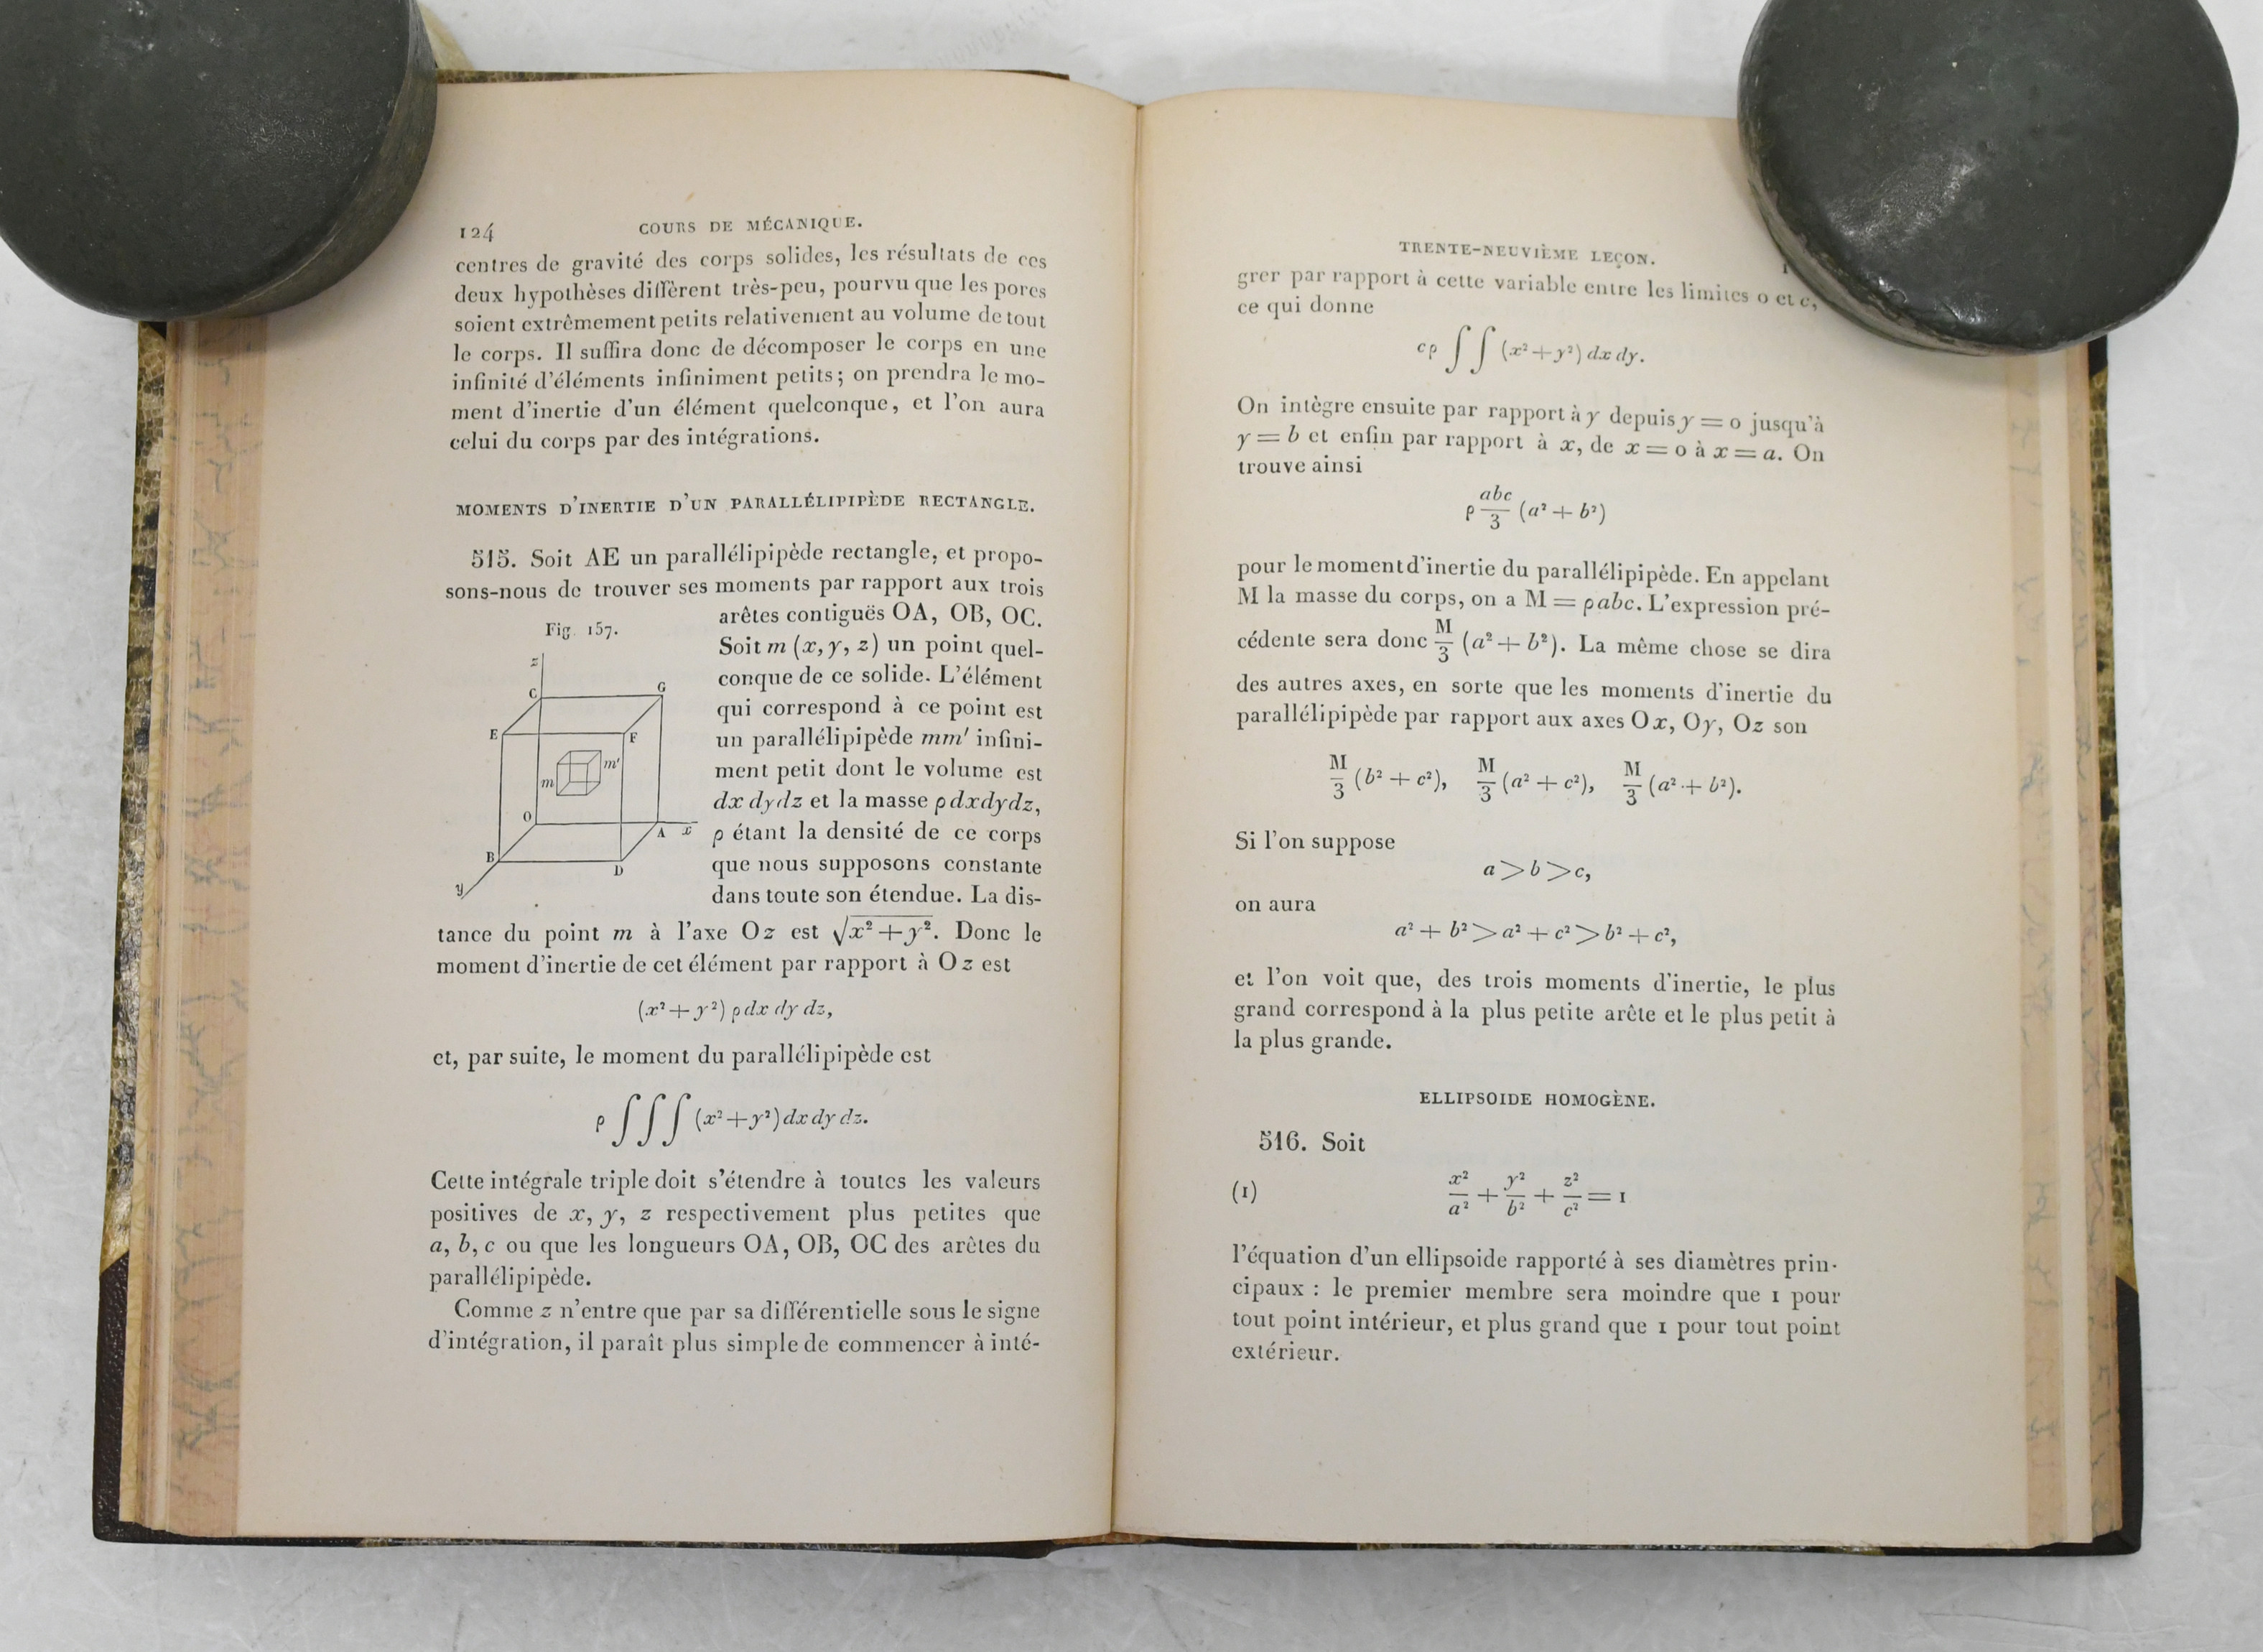 124 COURS DE MÉCANIQUE.
centres de gravité des corps solides, les résultats de ces
deux hypothèses diffèrent très-peu, pourvu que les pores
soient extrêmement petits relativement au volume de tout
le corps. Il suffira donc de décomposer le corps en une
infinité d'éléments infiniment petits; on prendra le mo-
ment d'inertie d'un élément quelconque, et l'on aura
celui du corps par des intégrations.
MOMENTS D'INERTIE D'UN PARALLÉLIPIPÈDE RECTANGLE.
515. Soit AE un parallélipipède rectangle, et propo-
sons-nous de trouver ses moments par rapport aux trois
arêtes contiguës OA, OB, OC.
Soit m (x, y, z) un point quel-
conque de ce solide. L'élément
qui correspond à ce point est
un parallélipipède mm' infini-
ment petit dont le volume est
dx dy dz et la masse ρ dx dy dz,
ρ étant la densité de ce corps
que nous supposons constante
dans toute son étendue. La dis-
Fig. 157.
z
C G
E F
m m'
O
A x
B
D
y
tance du point m à l'axe Oz est √x² + y². Donc le
moment d'inertie de cet élément par rapport à Oz est
(x² + y²) ρ dx dy dz,
et, par suite, le moment du parallélipipède est
ρ ∫∫∫ (x² + y²) dx dy dz.
Cette intégrale triple doit s'étendre à toutes les valeurs
positives de x, y, z respectivement plus petites que
a, b, c ou que les longueurs OA, OB, OC des arêtes du
parallélipipède.
Comme z n'entre que par sa différentielle sous le signe
d'intégration, il paraît plus simple de commencer à inté-
TRENTE-NEUVIÈME LEÇON.
grer par rapport à cette variable entre les limites 0 et c,
ce qui donne
cρ ∫∫ (x² + y²) dx dy.
On intègre ensuite par rapport à y depuis y = 0 jusqu'à
y = b et enfin par rapport à x, de x = 0 à x = a. On
trouve ainsi
ρ abc/3 (a² + b²)
pour le moment d'inertie du parallélipipède. En appelant
M la masse du corps, on a M = ρabc. L'expression pré-
cédente sera donc M/3 (a² + b²). La même chose se dira
des autres axes, en sorte que les moments d'inertie du
parallélipipède par rapport aux axes Ox, Oy, Oz son
M/3 (b² + c²), M/3 (a² + c²), M/3 (a² + b²).
Si l'on suppose
a > b > c,
on aura
a² + b² > a² + c² > b² + c²,
et l'on voit que, des trois moments d'inertie, le plus
grand correspond à la plus petite arête et le plus petit à
la plus grande.
ELLIPSOIDE HOMOGÈNE.
516. Soit
(1) x²/a² + y²/b² + z²/c² = 1
l'équation d'un ellipsoide rapporté à ses diamètres prin-
cipaux : le premier membre sera moindre que 1 pour
tout point intérieur, et plus grand que 1 pour tout point
extérieur.